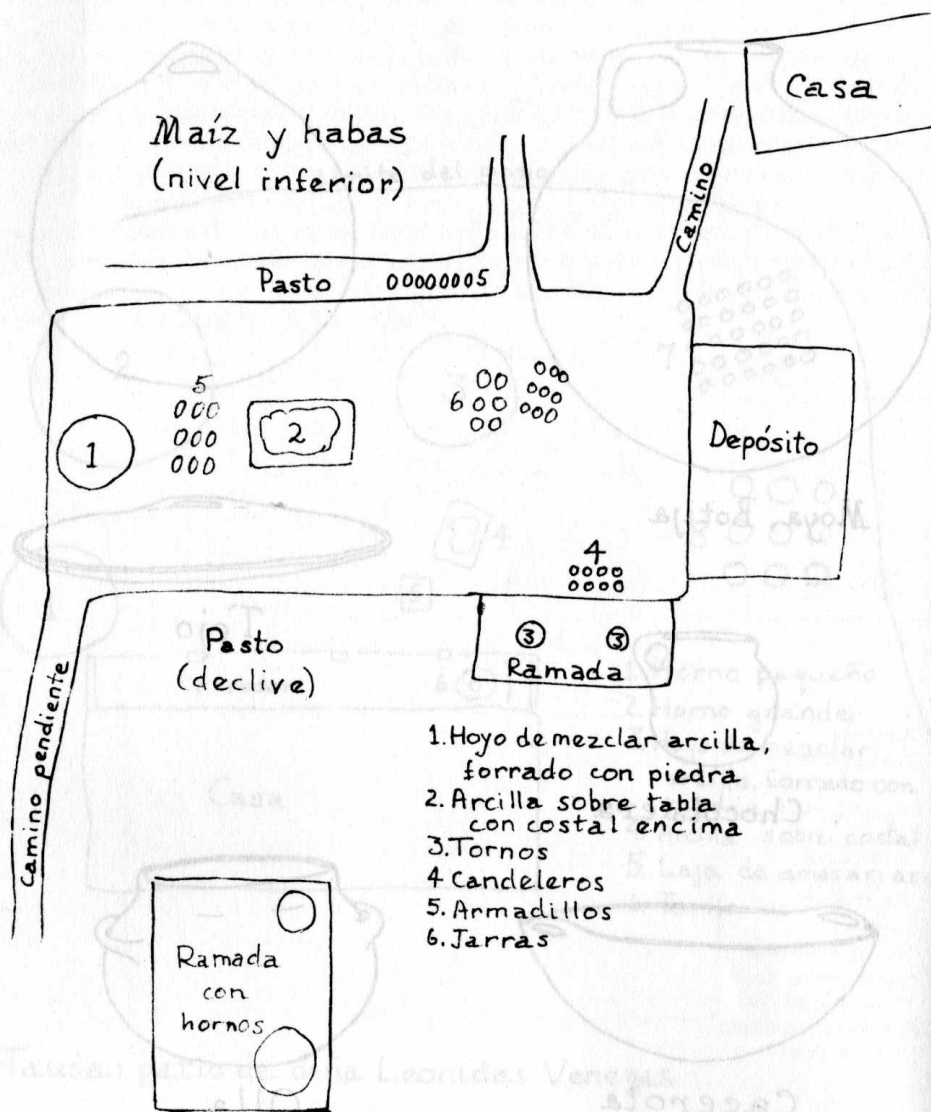 Casa
Maíz y habas
(nivel inferior)
Camino
Pasto 5
5
6
1
2
Depósito
4
3 3
Ramada
Pasto
(declive)
Camino pendiente
1. Hoyo de mezclar arcilla,
forrado con piedra
2. Arcilla sobre tabla
con costal encima
3. Tornos
4 Candeleros
5. Armadillos
6. Jarras
Ramada
con
hornos